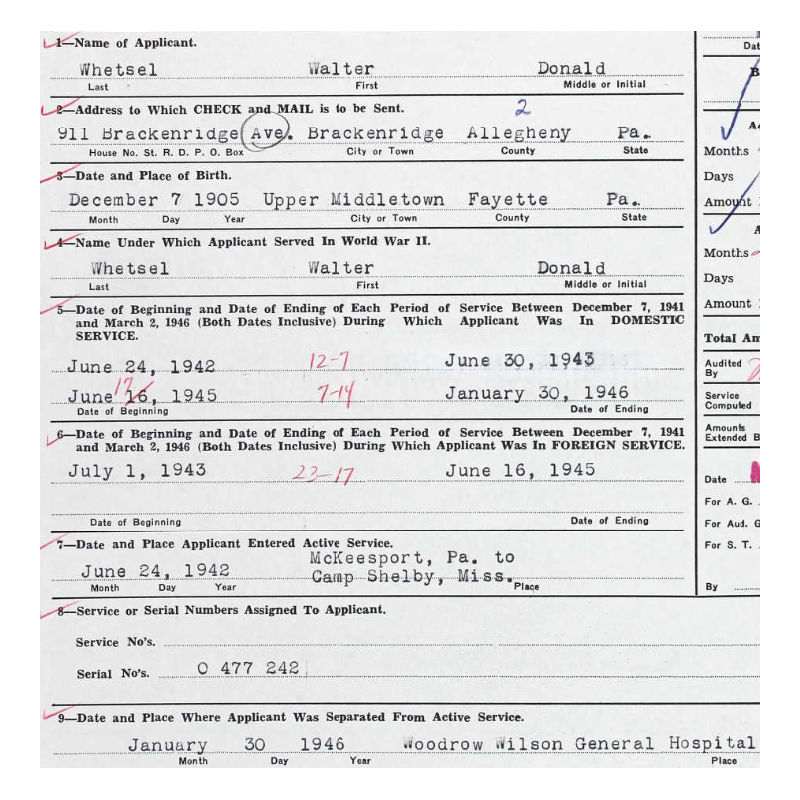 1—Name of Applicant.
Whetsel Walter Donald
Last First Middle or Initial
2—Address to Which CHECK and MAIL is to be Sent. 2
911 Brackenridge Ave. Brackenridge Allegheny Pa.
House No. St. R. D. P. O. Box City or Town County State
3—Date and Place of Birth.
December 7 1905 Upper Middletown Fayette Pa.
Month Day Year City or Town County State
4—Name Under Which Applicant Served In World War II.
Whetsel Walter Donald
Last First Middle or Initial
5—Date of Beginning and Date of Ending of Each Period of Service Between December 7, 1941
and March 2, 1946 (Both Dates Inclusive) During Which Applicant Was In DOMESTIC
SERVICE.
June 24, 1942 12-7 June 30, 1943
17
June 16, 1945 7-14 January 30, 1946
Date of Beginning Date of Ending
6—Date of Beginning and Date of Ending of Each Period of Service Between December 7, 1941
and March 2, 1946 (Both Dates Inclusive) During Which Applicant Was In FOREIGN SERVICE.
July 1, 1943 23-17 June 16, 1945
Date of Beginning Date of Ending
7—Date and Place Applicant Entered Active Service.
McKeesport, Pa. to
June 24, 1942 Camp Shelby, Miss.
Month Day Year Place
8—Service or Serial Numbers Assigned To Applicant.
Service No's.
Serial No's. O 477 242
9—Date and Place Where Applicant Was Separated From Active Service.
January 30 1946 Woodrow Wilson General Hospital
Month Day Year Place
Months
Days
Amount
Months
Days
Amount
Total
Audited
By
Service
Computed
Amounts
Extended
Date
For A. G.
For Aud.
For S. T.
By